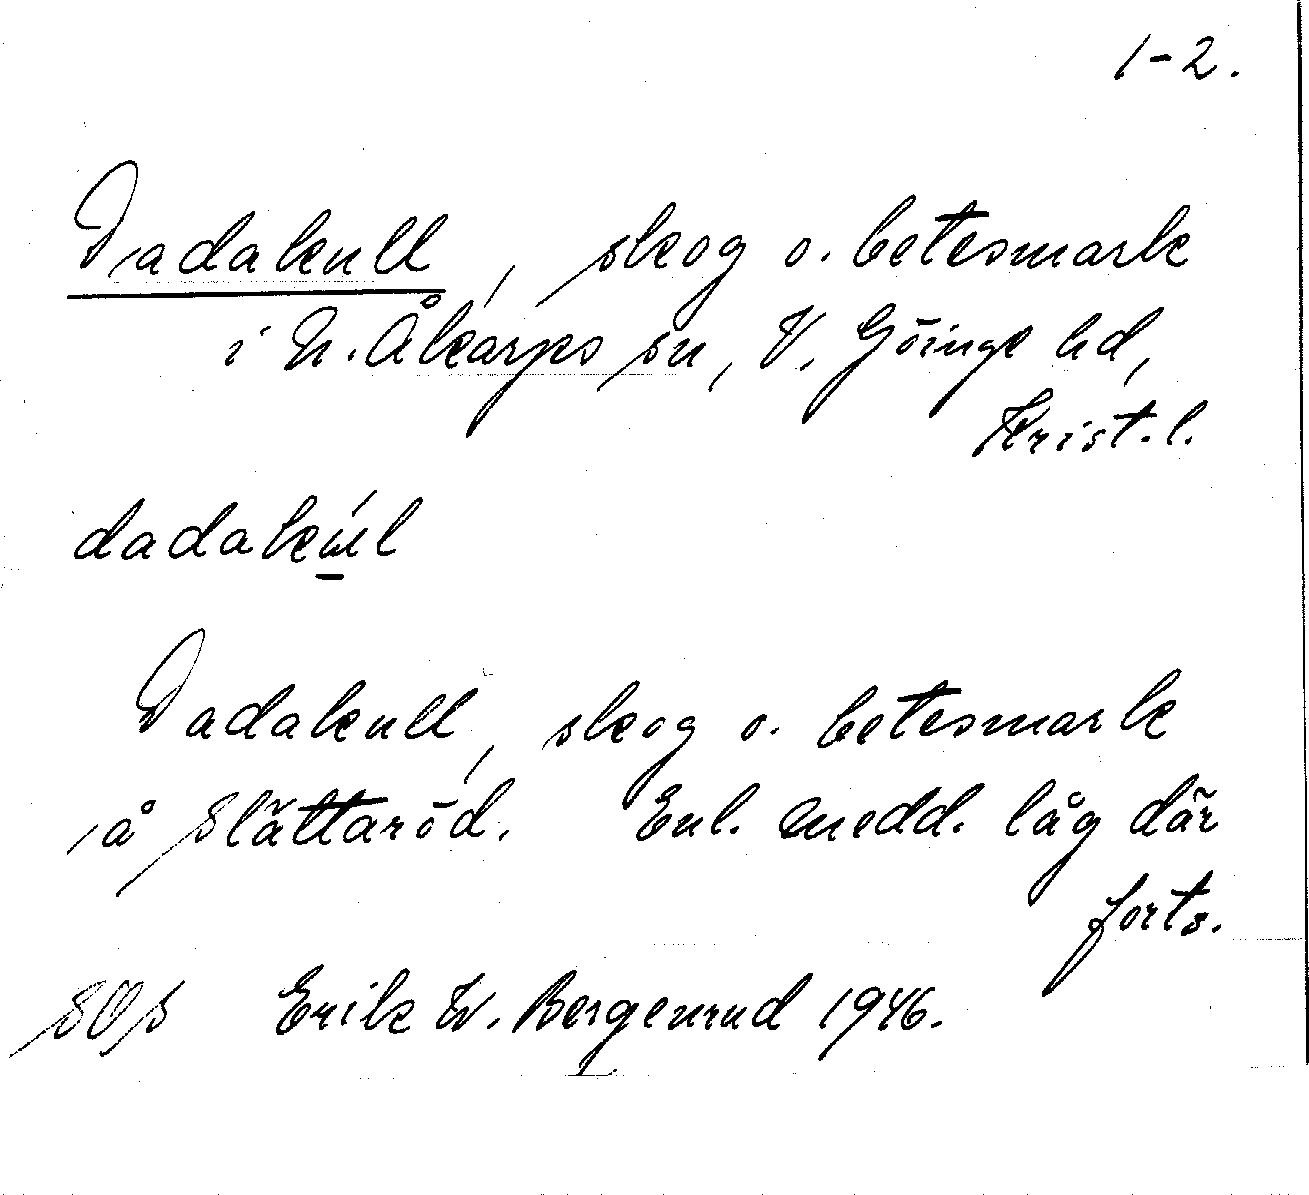 1-2.
Dadakull, skog o. betesmark
i N. Åkarps sn, V. Göinge hd,
Krist. l.
dadakúl
Dadakull, skog o. betesmark
å Slättaröd. Enl. medd. låg där
forts.
SOS Erik W. Bergenrud 1946.